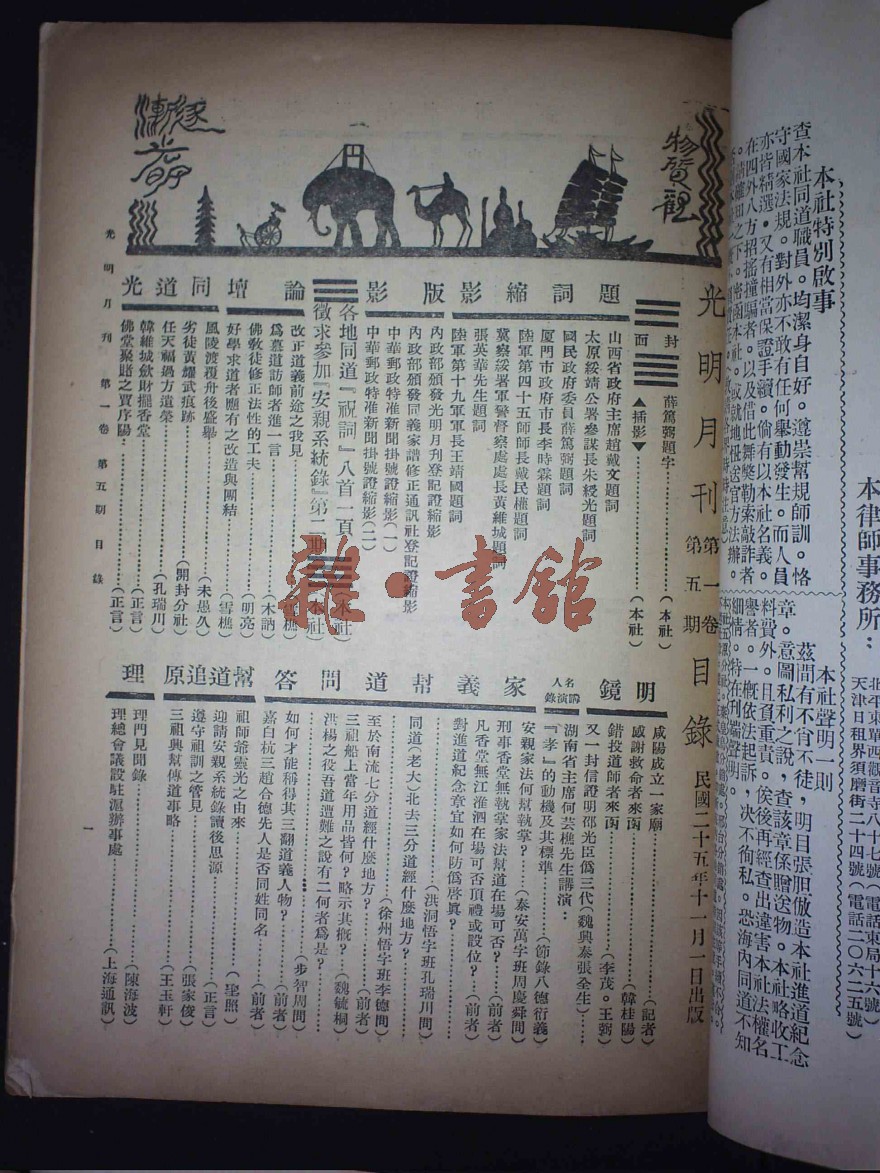 本律師事務所：
北平東單西觀音寺八十七號（電話東局十六號）
天津日租界須磨街二十四號（電話二〇六二五號）
本社特別啟事
查本社同道職員。均潔身自好。道崇幫規師訓。恪
守國家法規。對外亦不敢有任何舉動發生。而人員
亦皆精選。又有相當保證手續。倘有以本社名義。
在四外八方招搖撞騙者。以及借此舞弊勒索敲詐者
本社聲明一則
茲間有不肯不徒，明目張胆倣造本社進道紀念
章。意圖私利之說，查該章係贈送物。本社略收工
料費外。且負重責。俟後再經查出違害本社法權名
譽者。一概依法起訴，决不徇私。恐海內同道不知
細情。特在刊端聲明。
物質觀
逐漸光明
光明月刊 第一卷 第五期 目錄 民國二十五年十一月一日出版
封面
薛篤弼題字（本社）
▲插影▼（本社）
題詞縮影版影
山西省政府主席趙戴文題詞
太原綏靖公署參謀長朱綬光題詞
國民政府委員薛篤弼題詞
厦門市政府市長李時霖題詞
陸軍第四十五師師長戴民權題詞
冀察綏署軍警督察處處長黃維城題詞
張英華先生題詞
陸軍第十九軍軍長王靖國題詞
內政部頒發光明月刊登記證縮影
內政部頒發同義家譜修正通訊社登記證縮影
中華郵政特准新聞掛號證縮影（一）
中華郵政特准新聞掛號證縮影（二）
各地同道『祝詞』八首一頁（本社）
徵求參加『安親系統錄』第二期（本社）
論壇
改正道義前途之我見（雪樵）
爲墓道訪師者進一言（木訥）
佛敎徒修正法性的工夫（明亮）
好學求道者應有之改造與團結（雪樵）
同道光
風陵渡覆舟後盛舉（未愚久）
劣徒黃耀武痕跡（開封分社）
任天福過方遺榮（孔瑞川）
韓維城歛財擺香堂（正言）
佛堂聚賭之賈序陽（正言）
明鏡
咸陽成立一家廟（記者）
感謝救命者來函（韓桂陽）
錯投道師者來函（李茂。王弼）
又一封信證明邵光臣爲三代（魏興泰張全生）
名人講演錄
湖南省主席何芸樵先生講演：
『孝』的動機及其標準（節錄八德衍義）
家義幫道問答
安親家法何幫執掌？（泰安萬字班周慶舜問）
刑事香堂無執掌家法幫道在場可否？（前者）
凡香堂無江淮泗在場可否頂禮或設位？（前者）
對進道紀念章宜如何防僞啓眞？（前者）
同道（老大）北去三分道經什麽地方？（洪洞悟字班孔瑞川問）
至於南流七分道經什麽地方？（徐州悟字班李德問）
三祖船上當年用品皆何？略示其槪？（前者）
洪楊之役吾道遭難之說有二何者爲是？（魏毓桐）
如何才能稱得其三翻道義人物？（步智周問）
嘉白杭三趙合德先人是否同姓同名（前者）
幫道追原
祖師爺靈光之由來（聖照）
迎請安親系統錄讀後思源（正言）
遵守祖訓之管見（張家俊）
三祖興幫傳道事略（王玉軒）
理
理門見聞錄（陳海波）
理總會議設駐滬辦事處（上海通訊）
光明月刊 第一卷 第五期 目錄
一
雜·書館